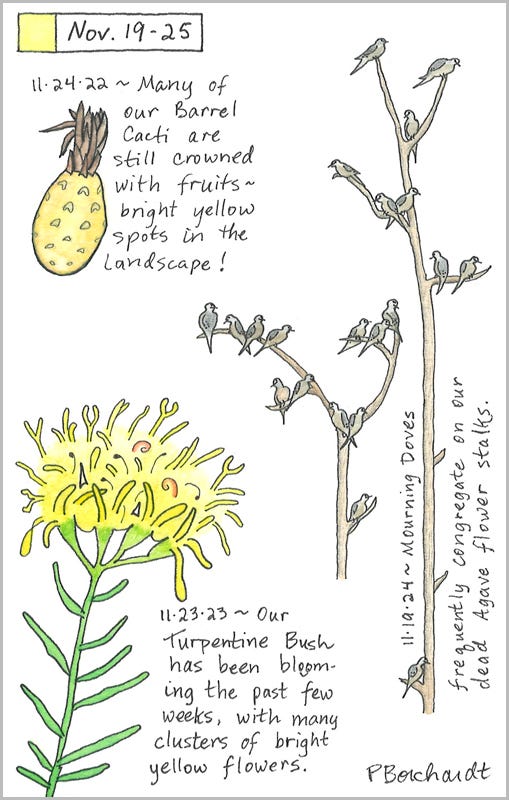 Nov. 19-25
11·24·22 ~ Many of
our Barrel
Cacti are
still crowned
with fruits ~
bright yellow
spots in the
landscape!
11·19·24 ~ Mourning Doves
frequently congregate on our
dead Agave flower stalks.
11·23·23 ~ Our
Turpentine Bush
has been bloom-
ing the past few
weeks, with many
clusters of bright
yellow flowers.
PBorchardt